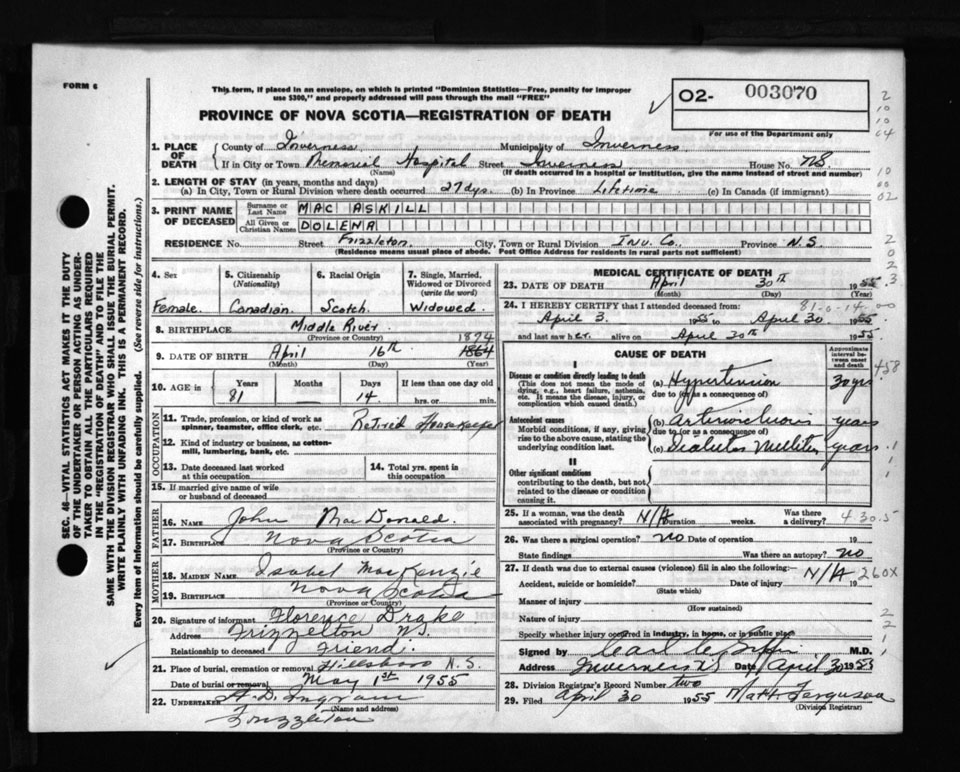 FORM 6
This form, if placed in an envelope, on which is printed "Dominion Statistics—Free, penalty for improper
use $300," and properly addressed will pass through the mail "FREE"
PROVINCE OF NOVA SCOTIA—REGISTRATION OF DEATH
02- 003070
For use of the Department only
1. PLACE OF DEATH
County of Inverness Municipality of Inverness
If in City or Town Memorial Hospital Street Inverness House No. NS.
(Name) (If death occurred in a hospital or institution, give the name instead of street and number)
2. LENGTH OF STAY (in years, months and days)
(a) In City, Town or Rural Division where death occurred 27 dys. (b) In Province Lifetime (c) In Canada (if immigrant)
3. PRINT NAME OF DECEASED
Surname or Last Name MAC ASKILL
All Given or Christian Names DOLENA
RESIDENCE No. Street Frizzleton City, Town or Rural Division Inv. Co. Province N.S.
(Residence means usual place of abode. Post Office Address for residents in rural parts not sufficient)
4. Sex Female
5. Citizenship (Nationality) Canadian
6. Racial Origin Scotch
7. Single, Married, Widowed or Divorced (write the word) Widowed
8. BIRTHPLACE Middle River
(Province or Country)
1874
9. DATE OF BIRTH April 16th 1864
(Month) (Day) (Year)
10. AGE in Years 81 Months Days 14 If less than one day old hrs. or min.
OCCUPATION
11. Trade, profession, or kind of work as spinner, teamster, office clerk, etc. Retired Housekeeper
12. Kind of industry or business, as cotton-mill, lumbering, bank, etc.
13. Date deceased last worked at this occupation
14. Total yrs. spent in this occupation
15. If married give name of wife or husband of deceased
FATHER
16. NAME John MacDonald
17. BIRTHPLACE Nova Scotia
(Province or Country)
MOTHER
18. MAIDEN NAME Isabel MacKenzie
19. BIRTHPLACE Nova Scotia
(Province or Country)
20. Signature of informant Florence Drake
Address Frizzelton NS.
Relationship to deceased Friend.
21. Place of burial, cremation or removal Hillsboro N.S.
Date of burial or removal May 1st 1955
22. UNDERTAKER Ingram
(Name and address)
Frizzleton
MEDICAL CERTIFICATE OF DEATH
23. DATE OF DEATH April 30th 1955
(Month) (Day) (Year)
24. I HEREBY CERTIFY that I attended deceased from:
April 3 1955 to April 30 1955
and last saw her alive on April 30th 1955
CAUSE OF DEATH
Approximate interval between onset and death
I
Disease or condition directly leading to death
(This does not mean the mode of dying, e.g., heart failure, asthenia, etc. It means the disease, injury, or complication which caused death.)
(a) Hypertension 30 yrs
due to (or as a consequence of)
Antecedent causes
Morbid conditions, if any, giving rise to the above cause, stating the underlying condition last.
(b) years
due to (or as a consequence of)
(c) Diabetes Mellitus years
II
Other significant conditions
contributing to the death, but not related to the disease or condition causing it.
25. If a woman, was the death associated with pregnancy? N/A Duration weeks. Was there a delivery? 430.5
26. Was there a surgical operation? no Date of operation 19
State findings Was there an autopsy? no
27. If death was due to external causes (violence) fill in also the following: N/A 260X
Accident, suicide or homicide? Date of injury 19
(State which)
Manner of injury
(How sustained)
Nature of injury
Specify whether injury occurred in industry, in home, or in public place
Signed by M.D.
Address Inverness NS Date April 30 1955
28. Division Registrar's Record Number two
29. Filed April 30 1955 Matt. Ferguson
(Division Registrar)
SEC. 46—VITAL STATISTICS ACT MAKES IT THE DUTY
OF THE UNDERTAKER OR PERSON ACTING AS UNDER-
TAKER TO OBTAIN ALL THE PARTICULARS REQUIRED
IN THE "REGISTRATION OF DEATH" AND TO FILE THE
SAME WITH THE DIVISION REGISTRAR WHO SHALL ISSUE THE BURIAL PERMIT.
WRITE PLAINLY WITH UNFADING INK. THIS IS A PERMANENT RECORD.
Every item of information should be carefully supplied. (See reverse side for instructions.)